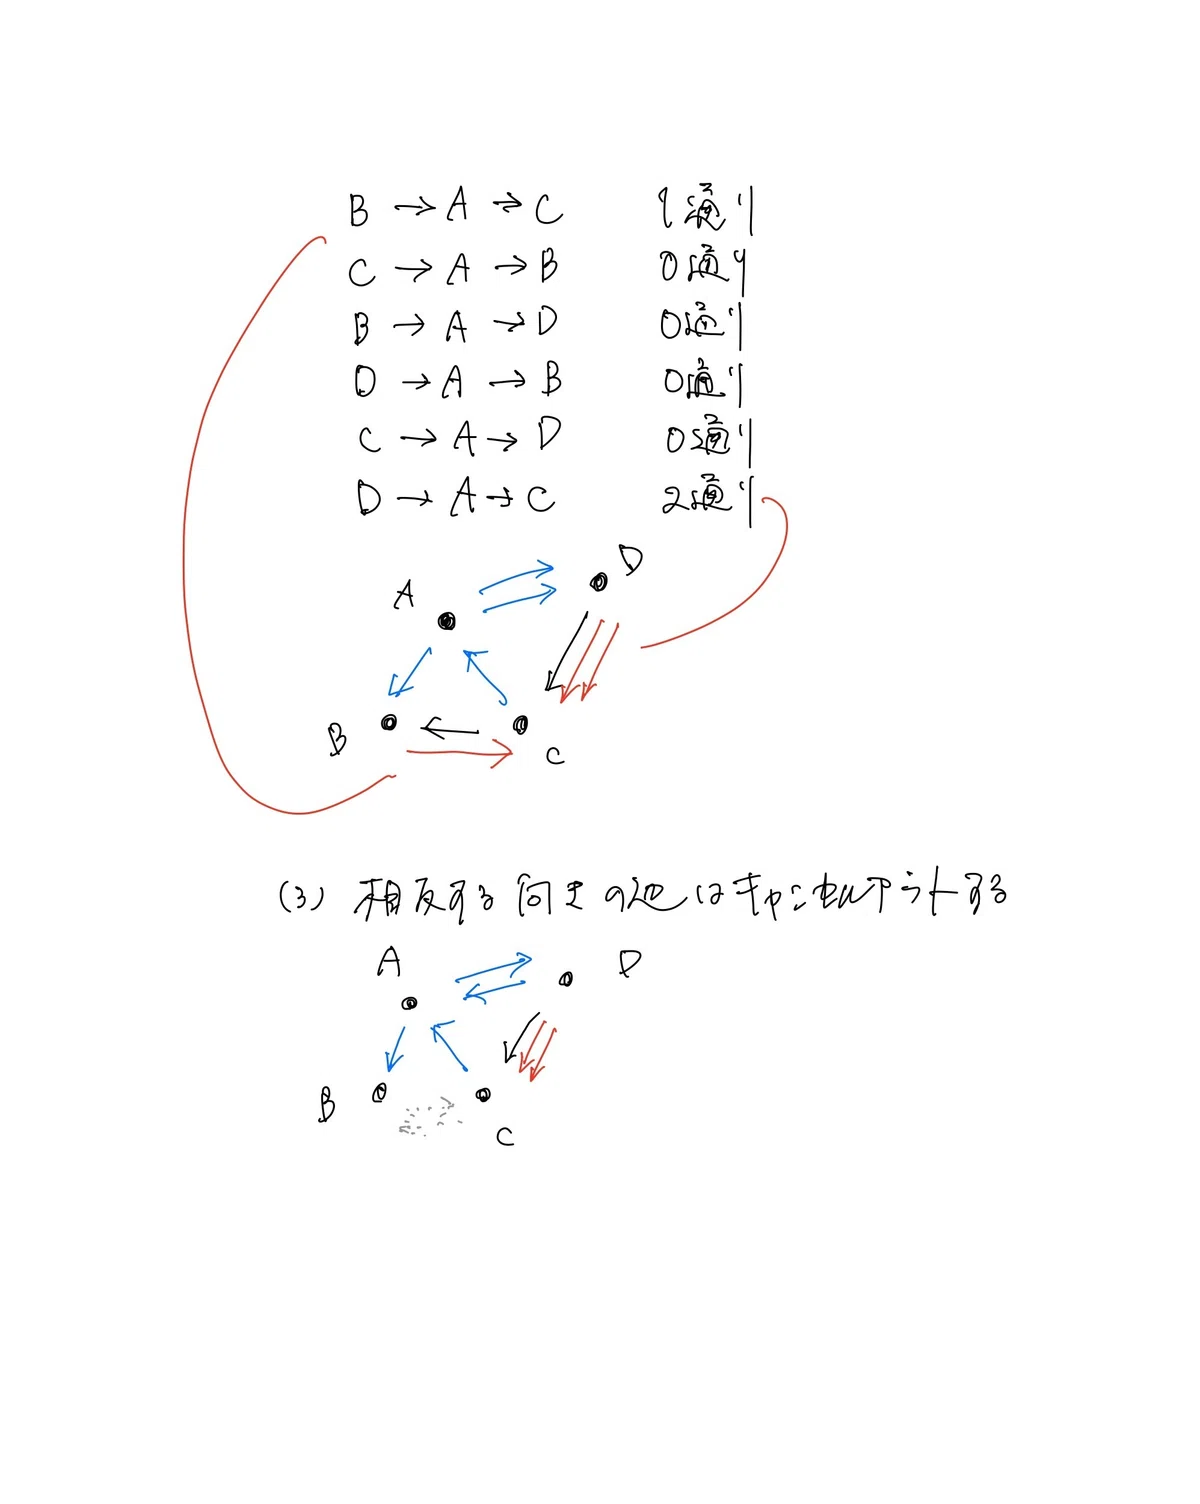 B → A → C 1通り
C → A → B 0通り
B → A → D 0通り
D → A → B 0通り
C → A → D 0通り
D → A → C 2通り
D
A
B
C
(3) 相反する向きの辺はキャンセルアウトする
A D
B
C